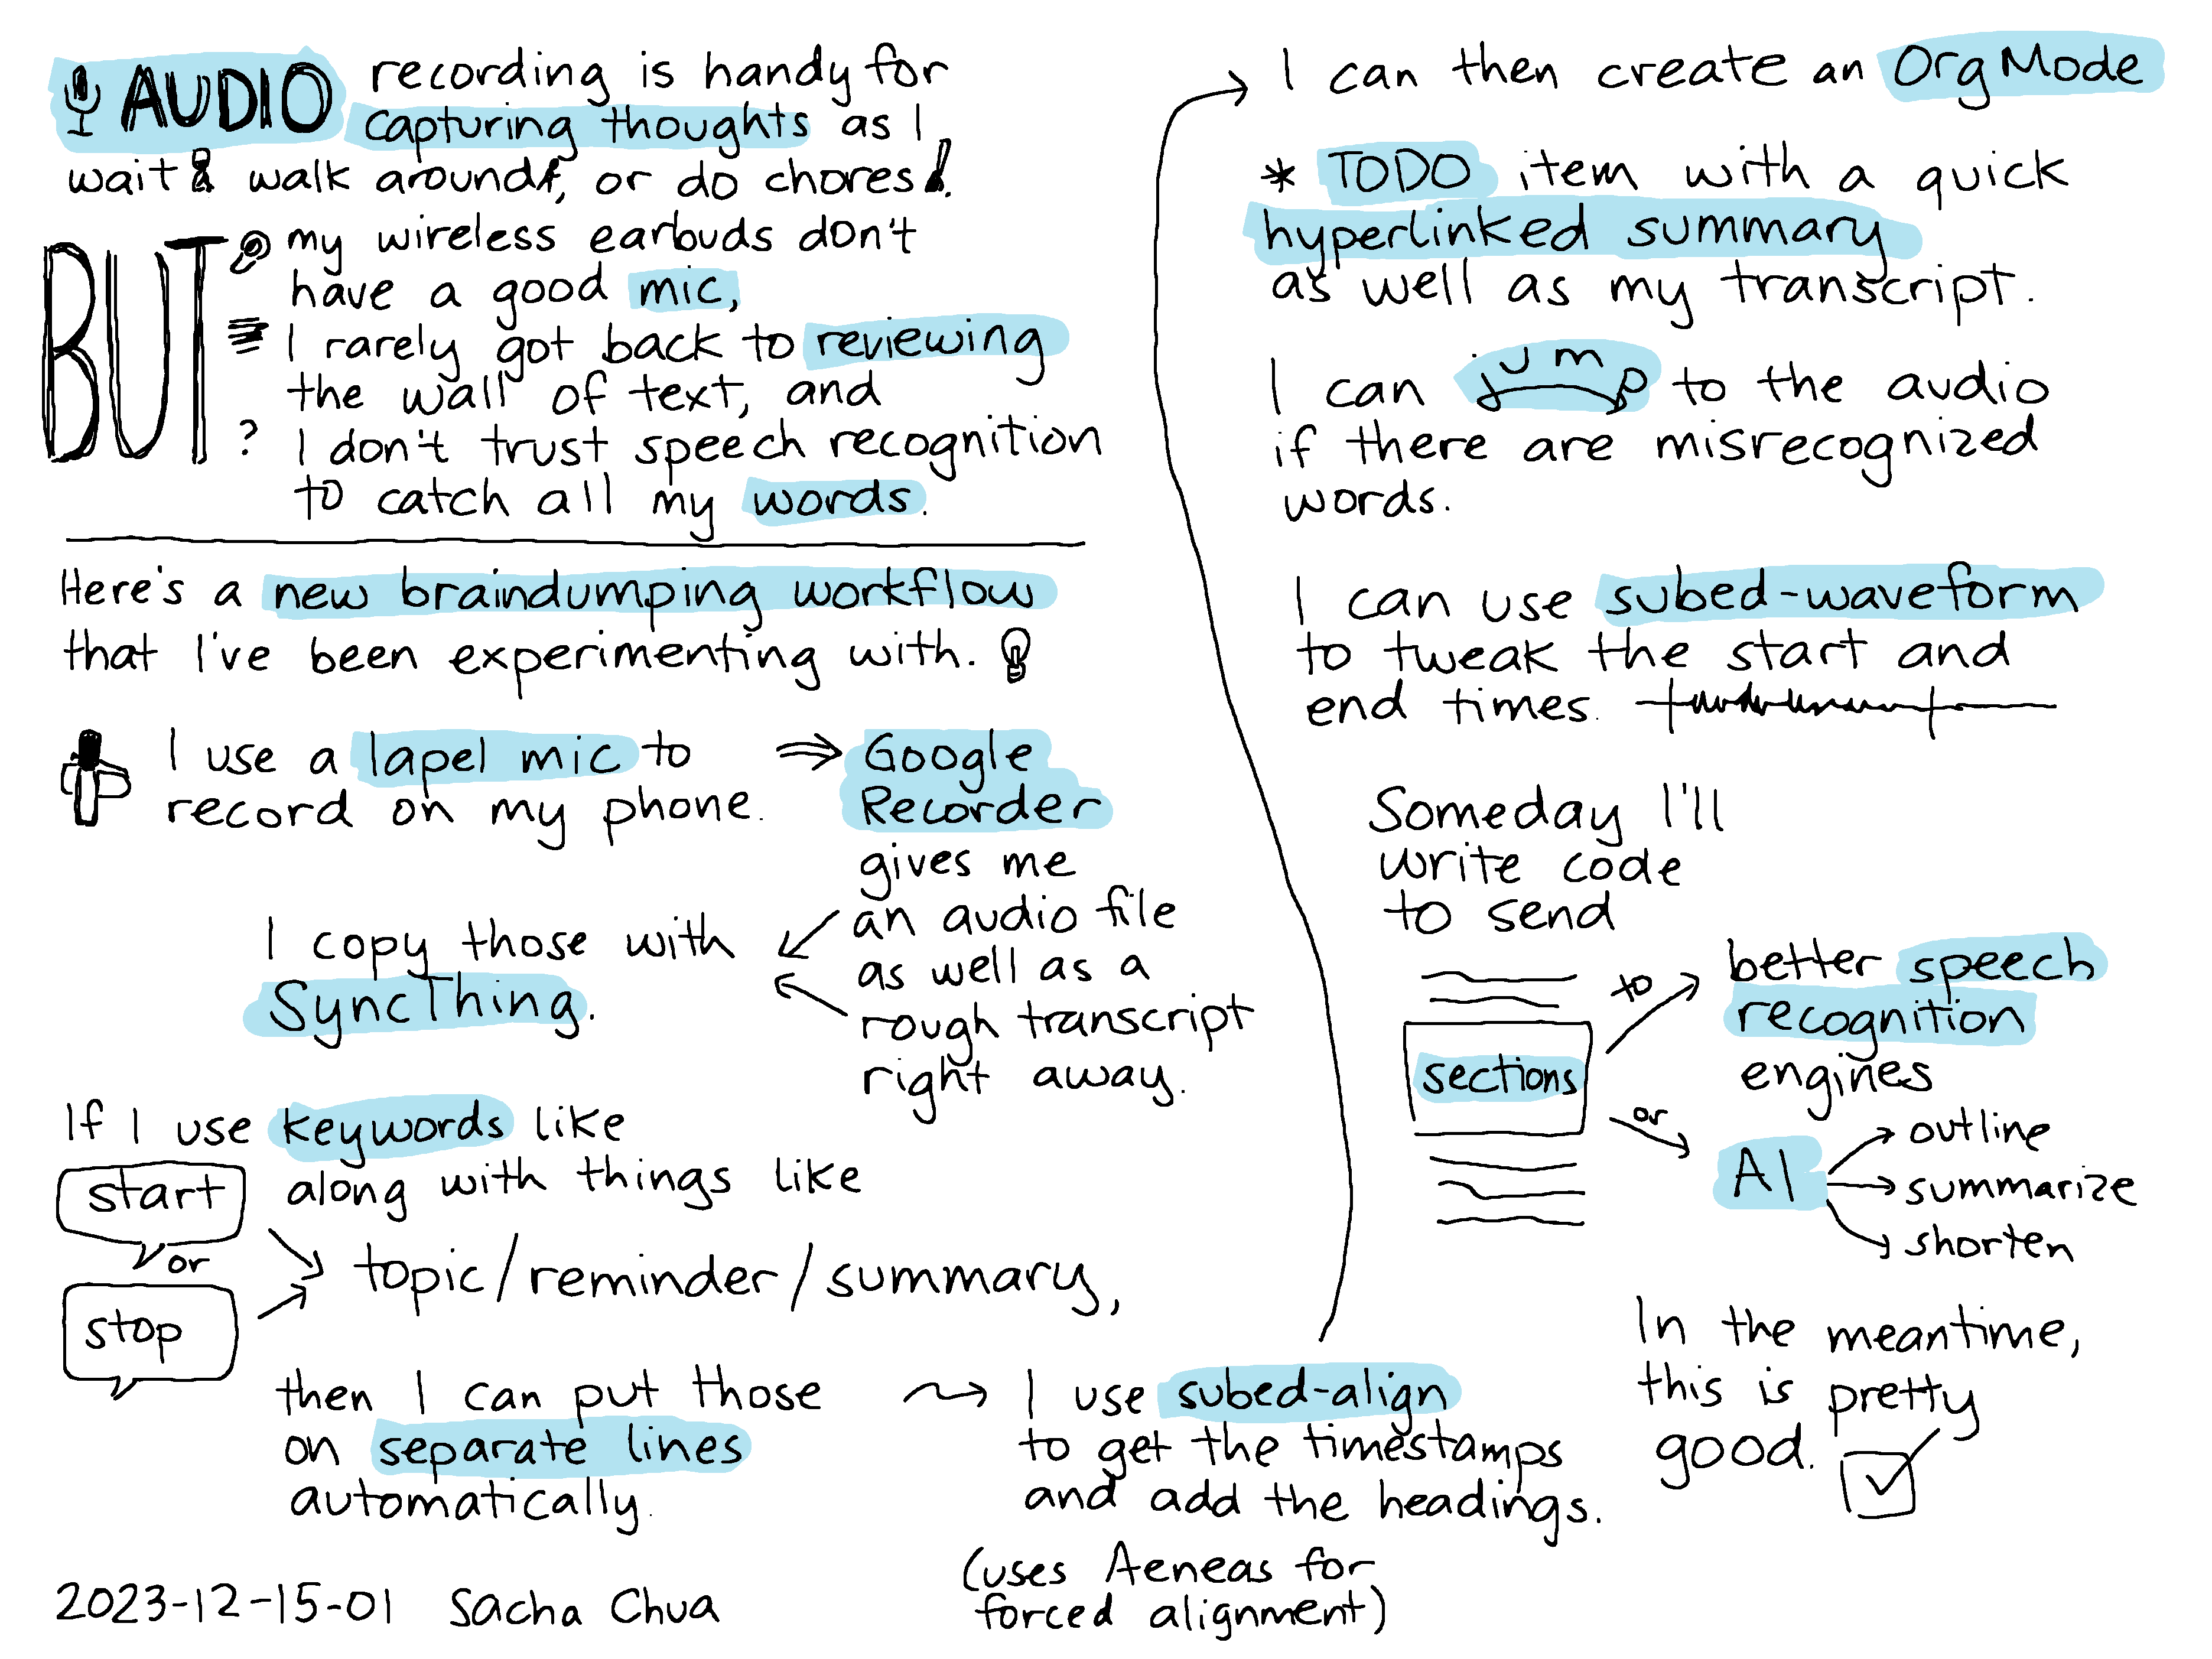 AUDIO recording is handy for
capturing thoughts as I
wait, walk around, or do chores.
BUT
my wireless earbuds don't
have a good mic,
I rarely got back to reviewing
the wall of text, and
? I don't trust speech recognition
to catch all my words.
Here's a new braindumping workflow
that I've been experimenting with.
I use a lapel mic to
record on my phone.
Google
Recorder
gives me
an audio file
as well as a
rough transcript
right away.
I copy those with
SyncThing.
If I use keywords like
start
or
stop
along with things like
topic/reminder/summary,
then I can put those
on separate lines
automatically.
I use subed-align
to get the timestamps
and add the headings.
(uses Aeneas for
forced alignment)
2023-12-15-01 Sacha Chua
I can then create an Org Mode
* TODO item with a quick
hyperlinked summary
as well as my transcript.
I can jump to the audio
if there are misrecognized
words.
I can use subed-waveform
to tweak the start and
end times.
Someday I'll
write code
to send
sections
to
better speech
recognition
engines
or
AI
outline
summarize
shorten
In the meantime,
this is pretty
good.